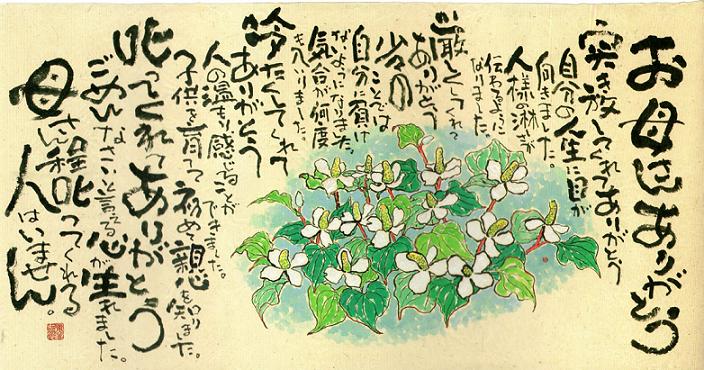 お母さんありがとう
突き放してくれてありがとう
自分の人生に目が
向きました。
人様の淋しさが
伝わるように
なりました。
厳しくしてくれて
ありがとう
少々の
ことでは
自分に負け
ないようになりました。
気合が何度
も入りました。
冷たくしてくれて
ありがとう
人の温もり感じることが
できました。
子供を育てて初めて親心を知りました。
叱ってくれてありがとう
ごめんなさいと言える心が生れました。
母さん程叱ってくれる
人はいません。